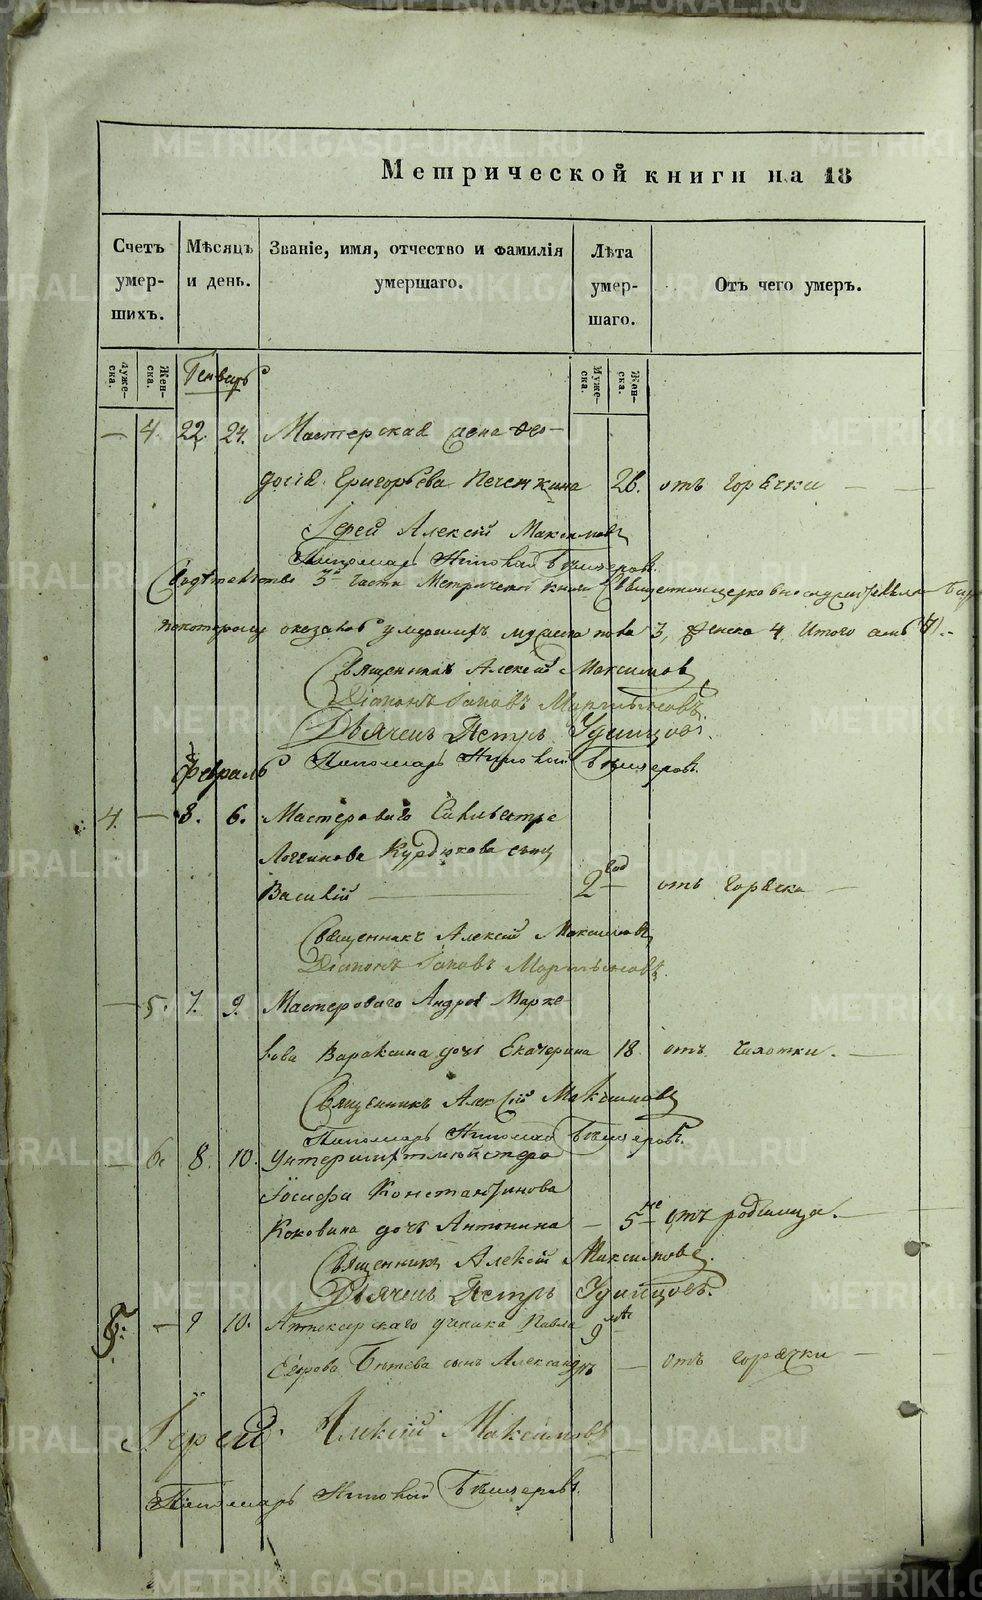 Метрической книги на 18
Счетъ умер- шихъ.
Мѣсяцъ и день.
Званіе, имя, отчество и фамилія умершаго.
Лѣта умер- шаго.
Отъ чего умеръ.
Муже- ска. Жен- ска.
Муже- ска. Жен- ска.
Генварь
— 4. 22. 24. Мастерская жена Ѳео-
досія Григорьева Печенкина 26. отъ горячки —
Іерей Алексій Максимовъ
Пономарь Николай
3й части Метрической книги
по которому оказалось умершихъ мужеска пола 3, женска 4. Итого
Священникъ Алексій Максимовъ
Діаконъ Іаковъ
Дьячекъ Петръ Удинцовъ.
Февраль
Пономарь Николай
4. — 3. 6. Мастероваго Сильвестра
Логгинова Курдюкова сынъ
Василій — 2 год отъ горячки —
Священникъ Алексій Максимовъ
Діаконъ Іаковъ
— 5. 7. 9. Мастероваго Андрея Марке-
лова Вараксина дочь Екатерина 18. отъ чахотки. —
Священникъ Алексій Максимовъ
Пономарь Николай
— 6. 8. 10. Унтершихтмейстера
Іосифа Константинова
Коковина дочь Антонина — 5 отъ родимца. —
Священникъ Алексій Максимовъ.
Дьячекъ Петръ Удинцовъ.
5. — 9 10. Аптекарскаго ученика Павла 9
Егорова сынъ Александръ — отъ горячки —
Іерей Алексій Максимовъ
Пономарь Николай
METRIKI.GASO-URAL.RU